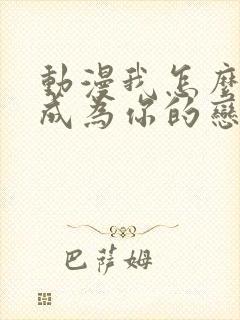 動漫我怎麼
成為你的戀
巴薩姆